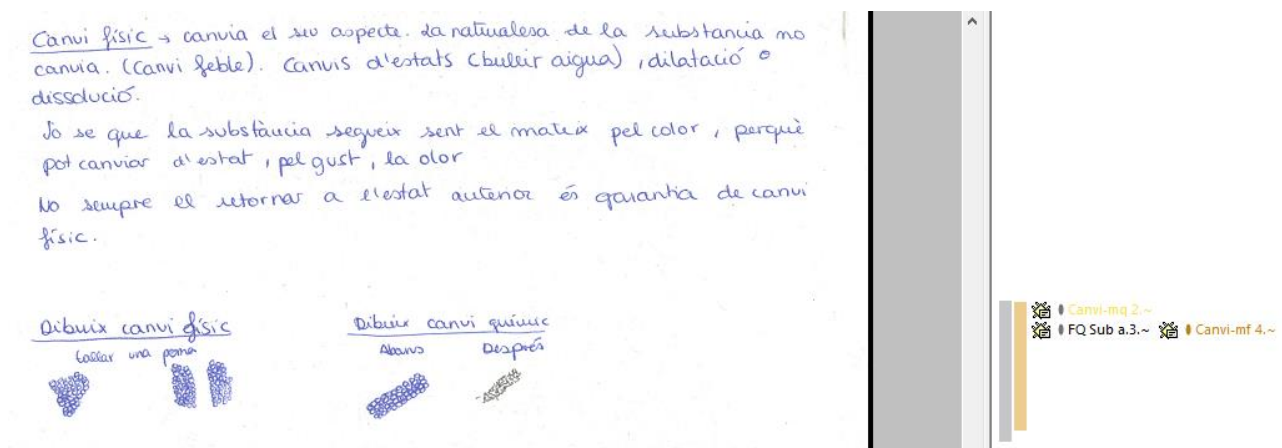 Canvi físic → canvia el seu aspecte. La naturalesa de la substancia no
canvia. (Canvi feble). Canvis d'estats (bullir aigua), dilatació o
dissolució.
Jo se que la substància segueix sent el mateix pel color, perquè
pot canviar d'estat, pel gust, la olor
No sempre el retornar a l'estat anterior és garantia de canvi
físic.
Dibuix canvi físic
Dibuix canvi químic
Tallar una poma
Abans Després
Canvi-mq 2.~
FQ Sub a.3.~ Canvi-mf 4.~